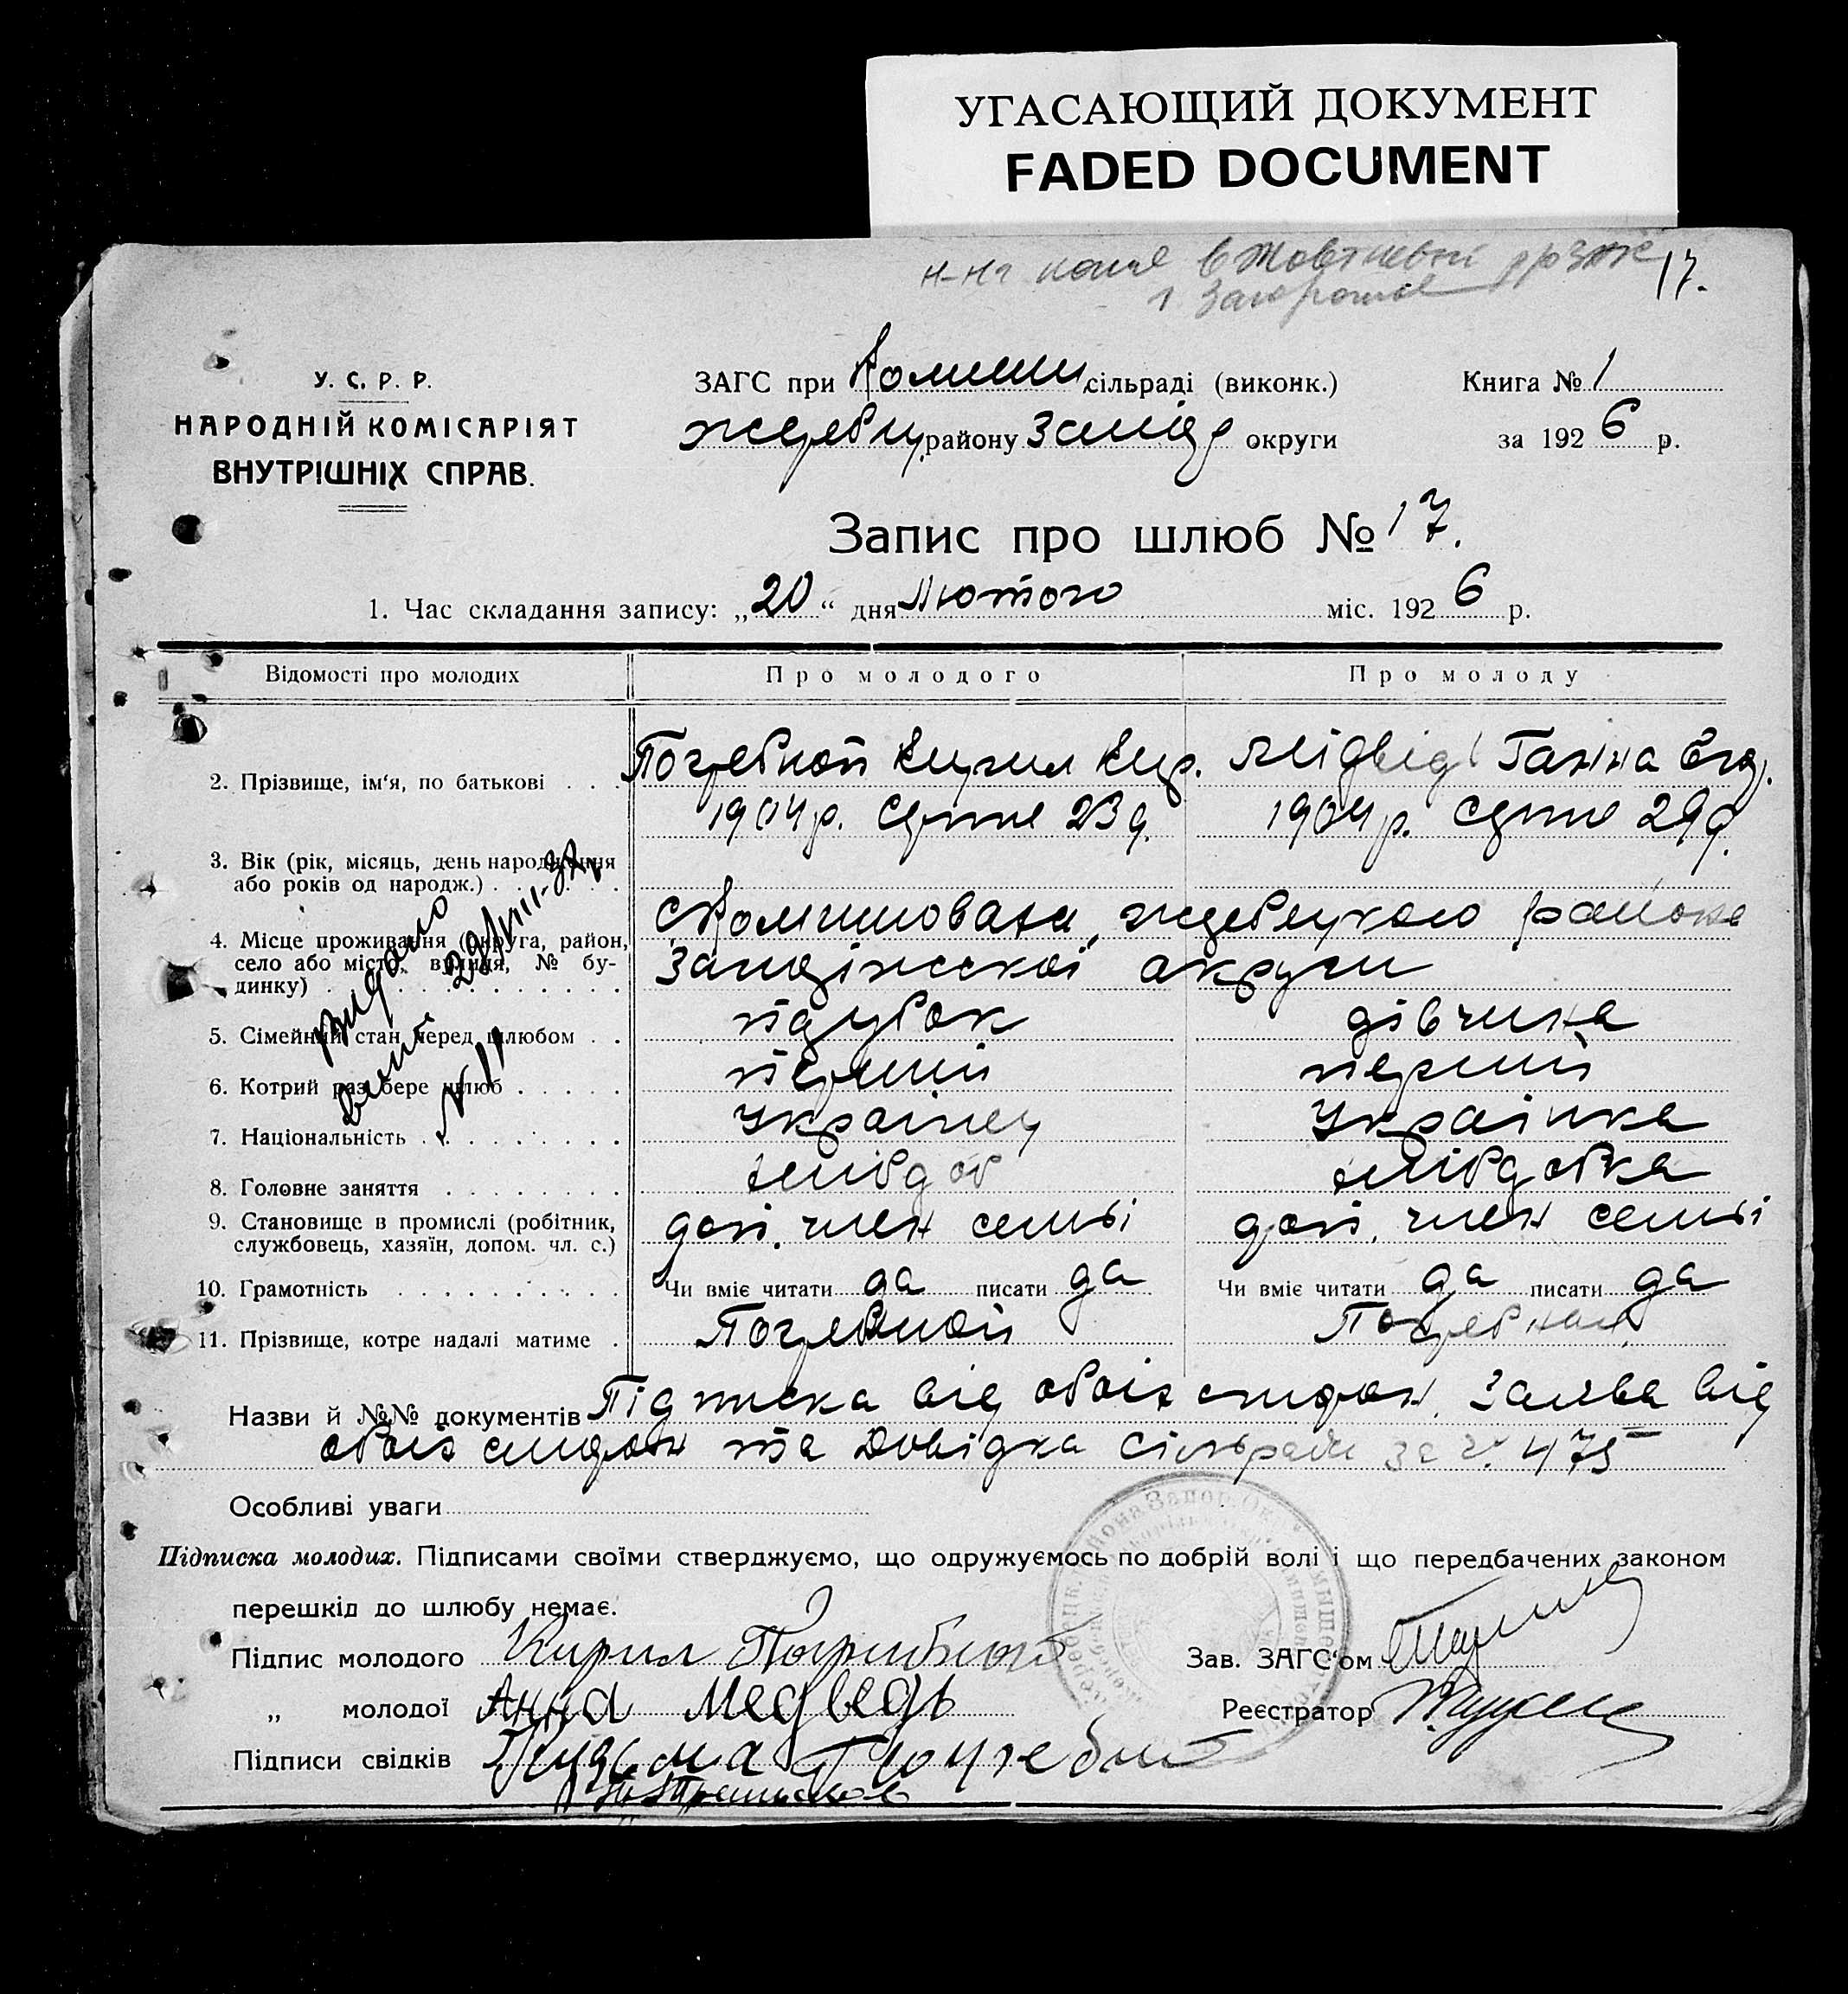 УГАСАЮЩИЙ ДОКУМЕНТ
FADED DOCUMENT
17.
У. С. Р. Р.
НАРОДНІЙ КОМІСАРІЯТ
ВНУТРІШНІХ СПРАВ.
ЗАГС при Комиши сільраді (виконк.)
жеребц. району Запоріз округи
Книга № 1
за 1926 р.
Запис про шлюб № 17.
1. Час складання запису: „20“ дня Лютого міс. 1926 р.
Відомості про молодих
Про молодого
Про молоду
2. Прізвище, ім'я, по батькові . . . Погребной Кирил Кир. Мідвідь Ганна
1904р. Січня 23д. 1904р. Січня 29д.
3. Вік (рік, місяць, день народження
або років од народж.) . . . . . .
4. Місце проживання (округа, район,
село або місто, вулиця, № бу-
динку) . . . . . . . . . . . .
с Комишоваха, жеребцукого району
Запоріжської округи
5. Сімейний стан перед шлюбом . . парубок дівчина
6. Котрий раз бере шлюб . . . . . перший перший
7. Національність . . . . . . . . Українец Українка
8. Головне заняття . . . . . . . . хлібороб хліборобка
9. Становище в промислі (робітник,
службовець, хазяїн, допом. чл. с.) доп. член семьі доп. член семьі
10. Грамотність . . . . . . . . . . Чи вміє читати да писати да Чи вміє читати да писати да
11. Прізвище, котре надалі матиме . Погребной Погребная
Видано
29/VIII-37р
N 11
Назви й №№ документів Підписка від обоіх сторон. Заява від
обоіх сторон та Довідка Сільради за № 475
Особливі уваги
Підписка молодих. Підписами своїми стверджуємо, що одружуємось по добрій волі і що передбачених законом
перешкід до шлюбу немає.
Підпис молодого Кирил Погрибной
Зав. ЗАГС'ом
„ молодої Анна Медведь
Реєстратор
Підписи свідків